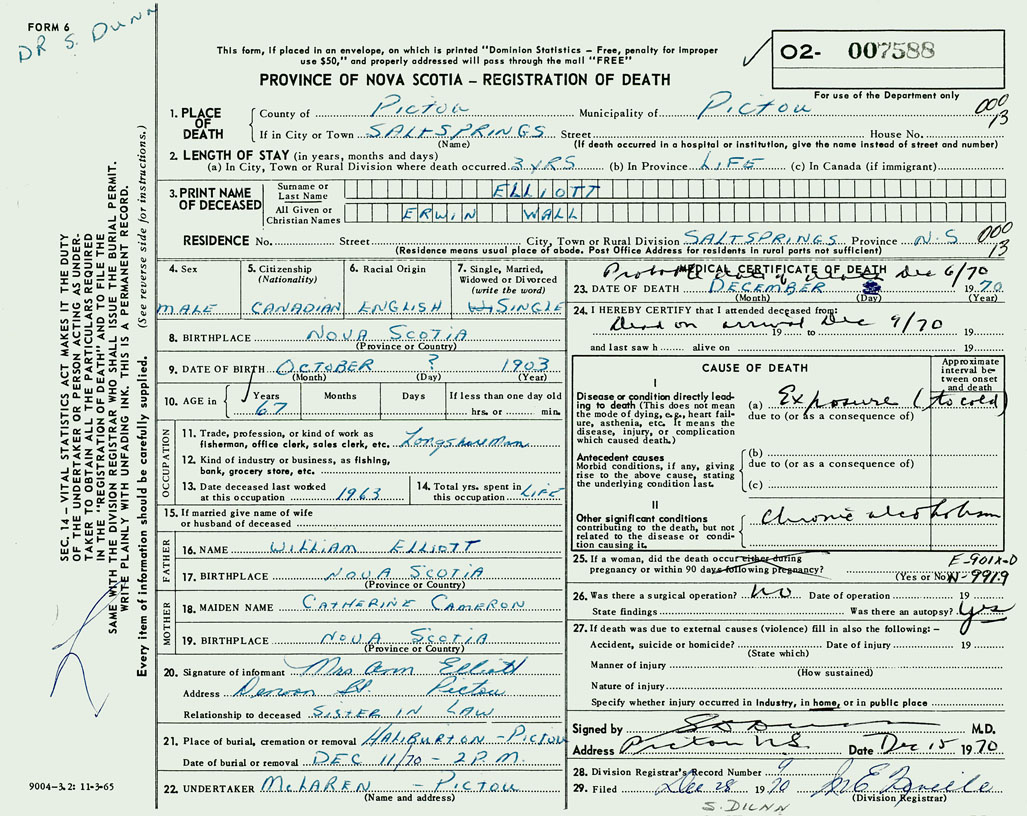 FORM 6
DR S. DUNN
This form, if placed in an envelope, on which is printed "Dominion Statistics – Free, penalty for improper
use $50," and properly addressed will pass through the mail "FREE"
PROVINCE OF NOVA SCOTIA – REGISTRATION OF DEATH
O2- 007588
For use of the Department only
1. PLACE OF DEATH
County of PICTOU Municipality of PICTOU 000
If in City or Town SALTSPRINGS Street House No. 13
(Name) (If death occurred in a hospital or institution, give the name instead of street and number)
2. LENGTH OF STAY (in years, months and days)
(a) In City, Town or Rural Division where death occurred 3 YRS (b) In Province LIFE (c) In Canada (if immigrant)
3. PRINT NAME OF DECEASED
Surname or Last Name ELLIOTT
All Given or Christian Names ERWIN WALL
RESIDENCE No. Street City, Town or Rural Division SALTSPRINGS Province N.S 000
(Residence means usual place of abode. Post Office Address for residents in rural parts not sufficient) 13
4. Sex MALE
5. Citizenship (Nationality) CANADIAN
6. Racial Origin ENGLISH
7. Single, Married, Widowed or Divorced (write the word) SINGLE
8. BIRTHPLACE NOVA SCOTIA
(Province or Country)
9. DATE OF BIRTH OCTOBER ? 1903
(Month) (Day) (Year)
10. AGE in Years 67 Months Days If less than one day old hrs. or min.
OCCUPATION
11. Trade, profession, or kind of work as fisherman, office clerk, sales clerk, etc. Longshoreman
12. Kind of industry or business, as fishing, bank, grocery store, etc.
13. Date deceased last worked at this occupation 1963
14. Total yrs. spent in this occupation LIFE
15. If married give name of wife or husband of deceased
FATHER
16. NAME WILLIAM ELLIOTT
17. BIRTHPLACE NOVA SCOTIA
(Province or Country)
MOTHER
18. MAIDEN NAME CATHERINE CAMERON
19. BIRTHPLACE NOVA SCOTIA
(Province or Country)
20. Signature of informant Mrs Ann Elliott
Address St. Pictou
Relationship to deceased SISTER IN LAW
21. Place of burial, cremation or removal HALIBURTON - PICTOU
Date of burial or removal DEC 11/70 - 2 P.M.
22. UNDERTAKER McLAREN - PICTOU
(Name and address)
MEDICAL CERTIFICATE OF DEATH
Dec 6/70
23. DATE OF DEATH DECEMBER 1970
(Month) (Day) (Year)
24. I HEREBY CERTIFY that I attended deceased from:
Dead on arrival Dec 9/70
19 to 19
and last saw h alive on 19
CAUSE OF DEATH
Approximate interval between onset and death
I
Disease or condition directly leading to death (This does not mean the mode of dying, e.g., heart failure, asthenia, etc. It means the disease, injury, or complication which caused death.)
(a) Exposure (to cold)
due to (or as a consequence of)
Antecedent causes
Morbid conditions, if any, giving rise to the above cause, stating the underlying condition last.
(b)
due to (or as a consequence of)
(c)
II
Other significant conditions contributing to the death, but not related to the disease or condition causing it.
Chronic alcoholism
25. If a woman, did the death occur either during pregnancy or within 90 days following pregnancy? (Yes or No)
E-901X-0
N-991.9
26. Was there a surgical operation? No Date of operation 19
State findings Was there an autopsy? Yes
27. If death was due to external causes (violence) fill in also the following: –
Accident, suicide or homicide? Date of injury 19
(State which)
Manner of injury
(How sustained)
Nature of injury
Specify whether injury occurred in industry, in home, or in public place
Signed by S D Dunn M.D.
Address Pictou N.S. Date Dec 15 1970
28. Division Registrar's Record Number 9
29. Filed Dec 28 1970
(Division Registrar)
S. DUNN
SEC. 14 – VITAL STATISTICS ACT MAKES IT THE DUTY
OF THE UNDERTAKER OR PERSON ACTING AS UNDER-
TAKER TO OBTAIN ALL THE PARTICULARS REQUIRED
IN THE "REGISTRATION OF DEATH" AND TO FILE THE
SAME WITH THE DIVISION REGISTRAR WHO SHALL ISSUE THE BURIAL PERMIT.
WRITE PLAINLY WITH UNFADING INK. THIS IS A PERMANENT RECORD.
Every item of information should be carefully supplied. (See reverse side for instructions.)
9004-3.2: 11-3-65